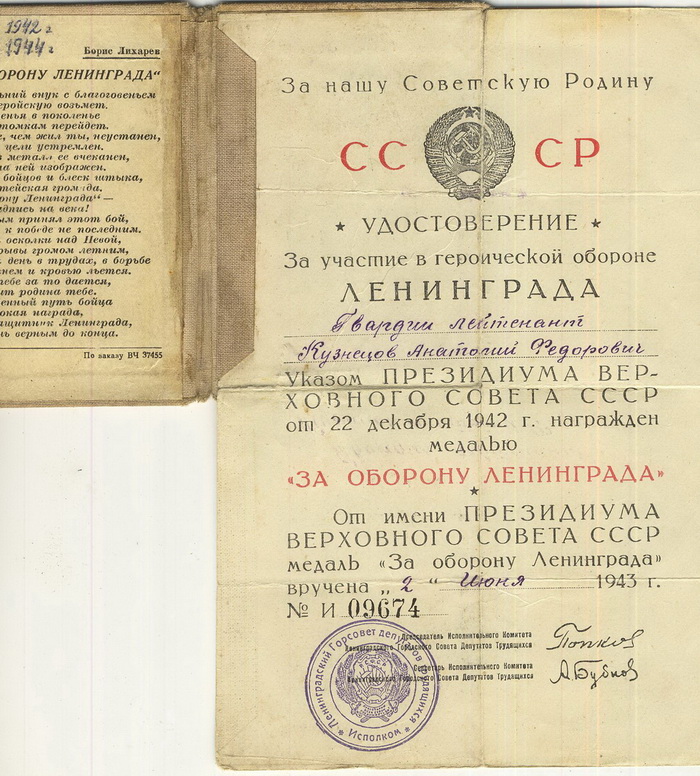 1942 г
1944 г
Борис Лихарев
ОРОНУ ЛЕНИНГРАДА“
ний внук с благоговеньем
еройскую возьмет.
енья в поколенье
томкам перейдет.
, чем жил ты, неустанен,
цели устремлен.
металл ее вчеканен,
на ней изображен.
бойцов и блеск штыка,
тейская громада.
ону Ленинграда“ —
дпись на века!
ым принял этот бой,
к победе не последним.
осколки над Невой,
рывы громом летним,
день в трудах, в борьбе
нем и кровью льется.
ебе за то дается,
ит родина тебе.
енный путь бойца
окая награда,
ащитник Ленинграда,
нь верным до конца.
По заказу ВЧ 37455
За нашу Советскую Родину
СССР
★ УДОСТОВЕРЕНИЕ ★
За участие в героической обороне
ЛЕНИНГРАДА
Гвардии лейтенант
Кузнецов Анатолий Федорович
Указом ПРЕЗИДИУМА ВЕР-
ХОВНОГО СОВЕТА СССР
от 22 декабря 1942 г. награжден
медалью
«ЗА ОБОРОНУ ЛЕНИНГРАДА»
★
От имени ПРЕЗИДИУМА
ВЕРХОВНОГО СОВЕТА СССР
медаль «За оборону Ленинграда»
вручена „ 2 “ Июня 1943 г.
№ И 09674
Председатель Исполнительного Комитета
Ленинградского Городского Совета Депутатов Трудящихся
Попков
Секретарь Исполнительного Комитета
Ленинградского Городского Совета Депутатов Трудящихся
А Бубнов
Ленинградский Горсовет депутатов трудящихся
★ Исполком ★